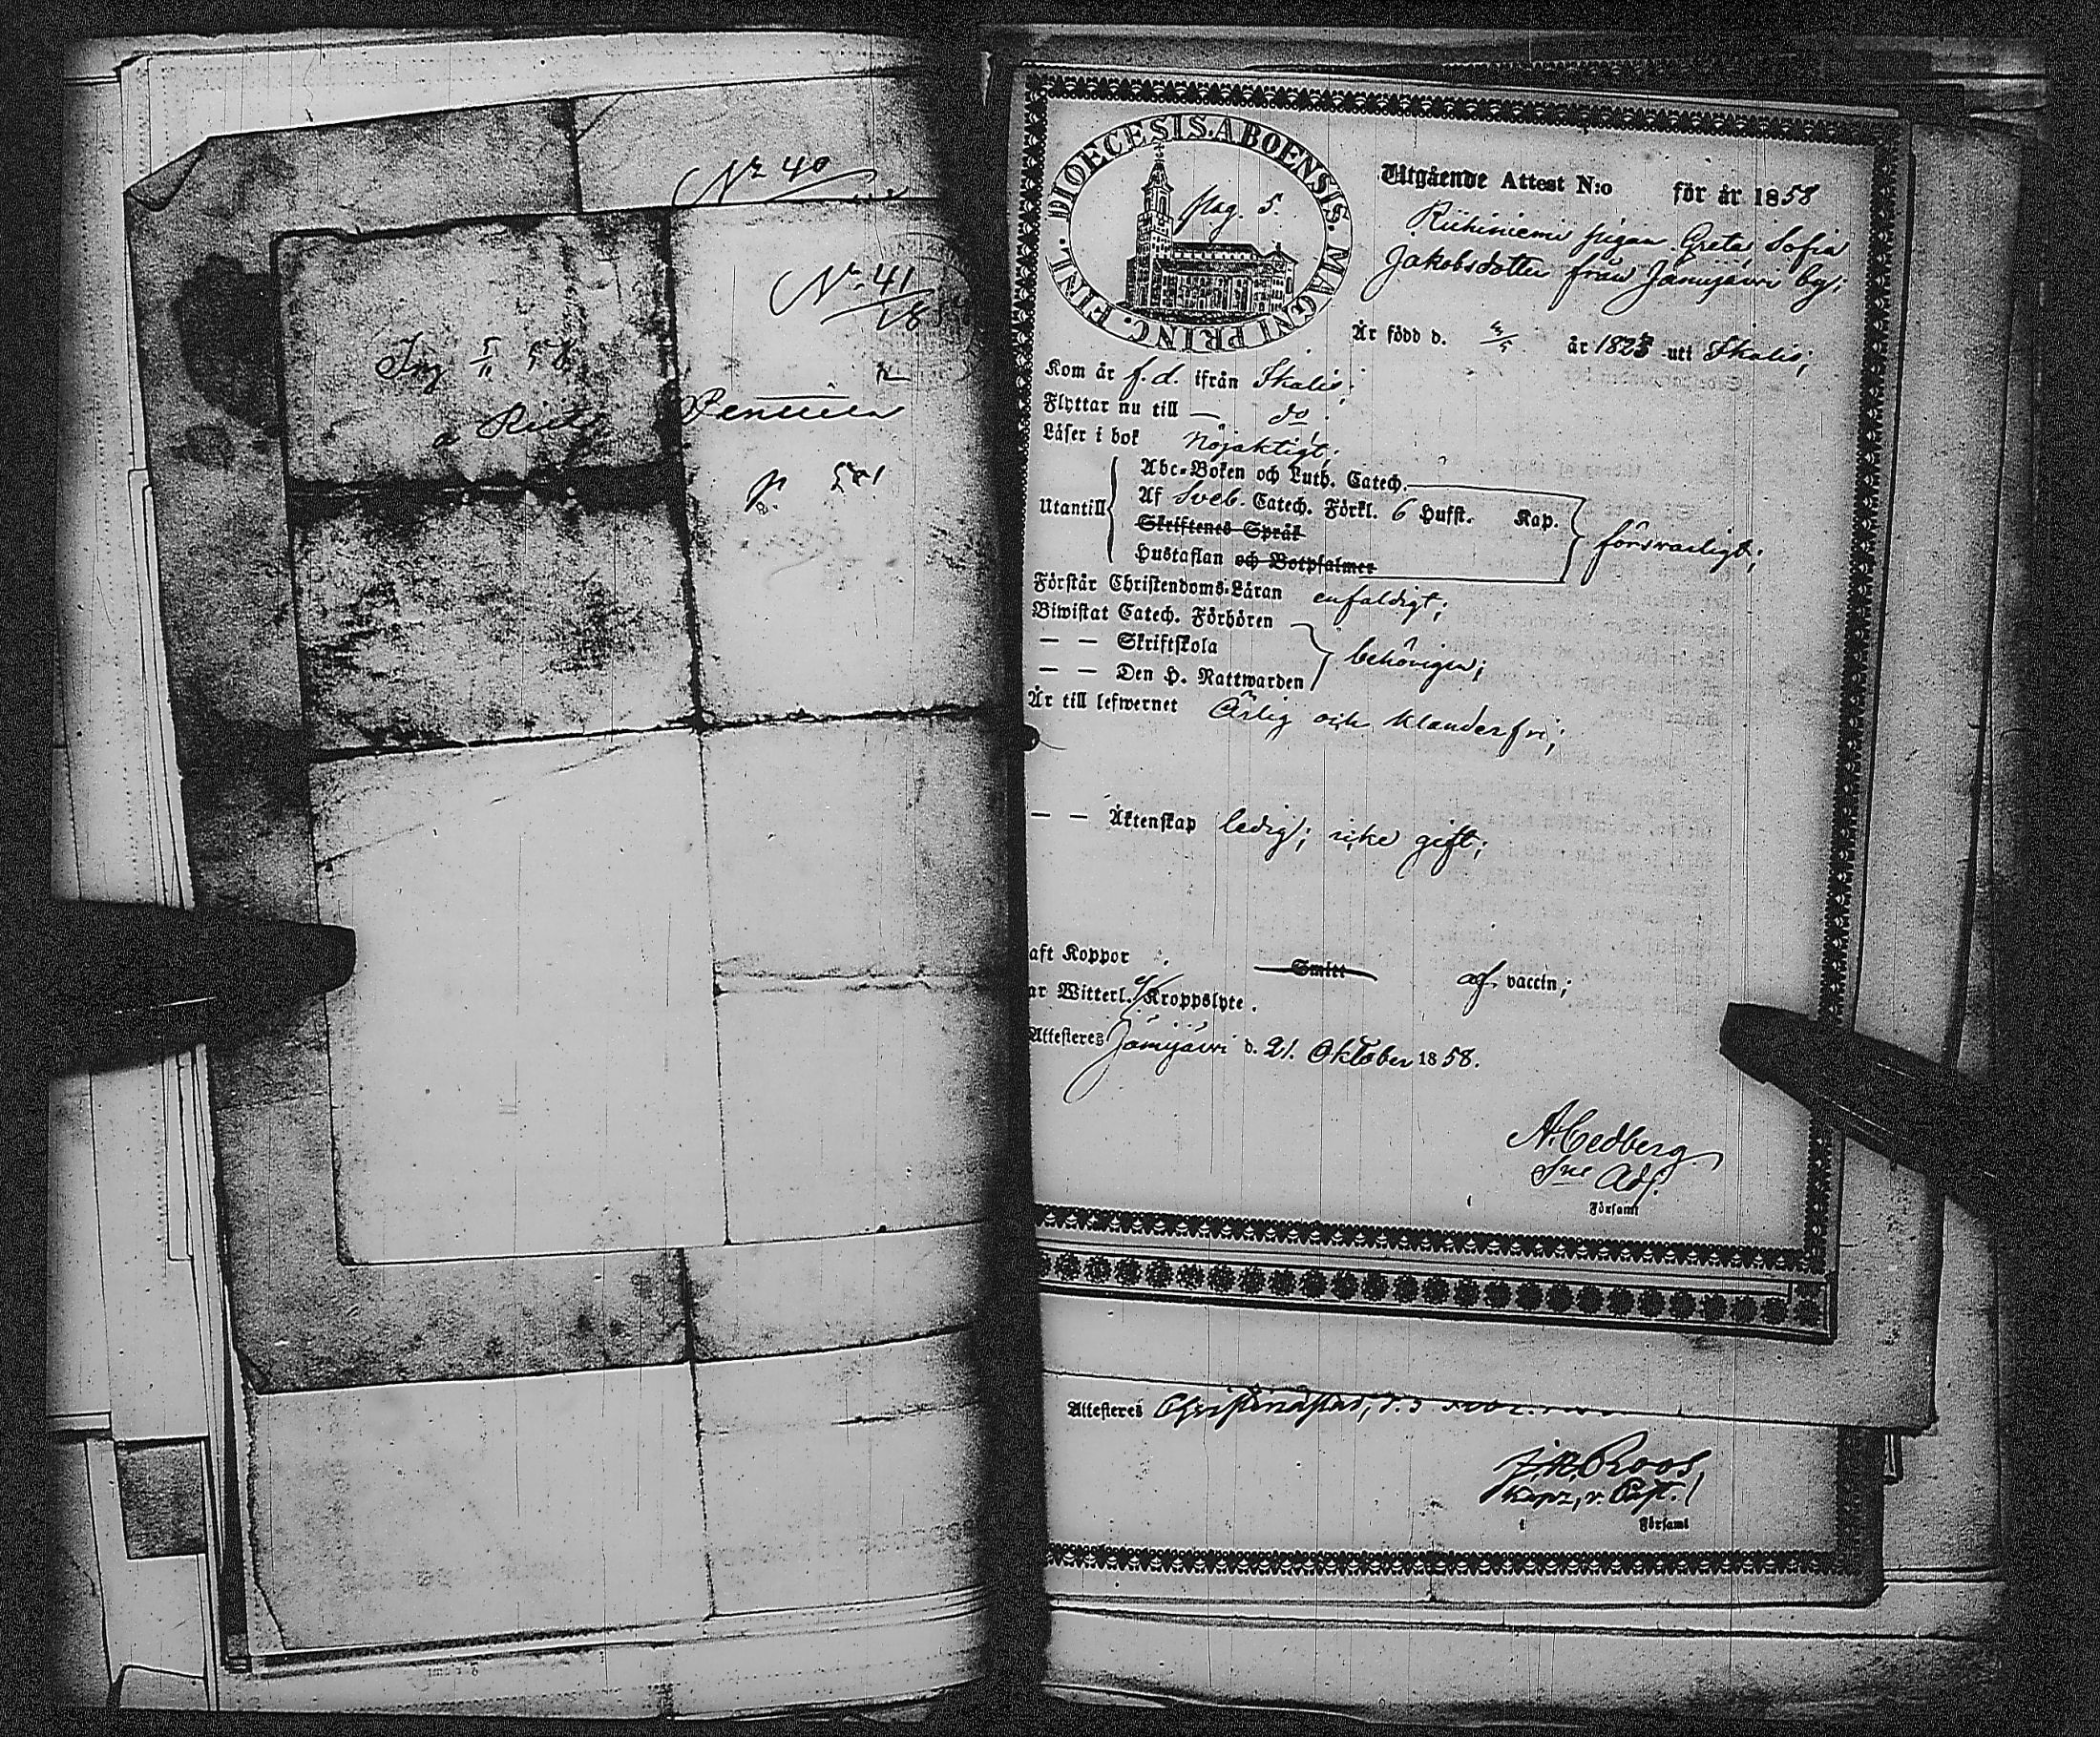 Nr 40
Nr 41
58
Ing 5/11 58
a
p. 581
DIOECESIS. ABOENSIS. MAGNI PRINC. FINL.
pag. 5.
Utgående Attest N:o för år 1858
Riihiniemi pigan Greta Sofia
Jakobsdotter från Jämijärvi by;
Är född d. år 1823 uti Ikalis;
Kom år f. d. ifrån Ikalis;
Flyttar nu till — do.
Läser i bok Nöjaktigt;
Abc-Boken och Luth. Catech.
Utantill Af Sveb. Catech. Förkl. 6 Hufst. Kap. försvarligt;
Skriftenes Språk
Hustaflan och Botpsalmer
Förstår Christendoms-Läran enfaldigt;
Biwistat Catech. Förhören
— — Skriftskola behörigen;
— — Den H. Nattwarden
Är till lefwernet Ärlig och klanderfri;
— — Äktenskap ledig; icke gift;
aft Koppor Smitt af vaccin;
ar Witterl. Kroppslyte.
Attesteres Jämijärvi d. 21. Oktober 1858.
A. Cedberg
Sne Adj.
i Församl
Attesteres Christinestad, d. 5
J. R. Roos
Kapl, v. Past.
i Församl